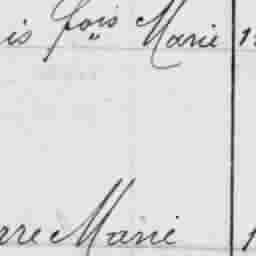 is fois Marie 1
rre Marie 1